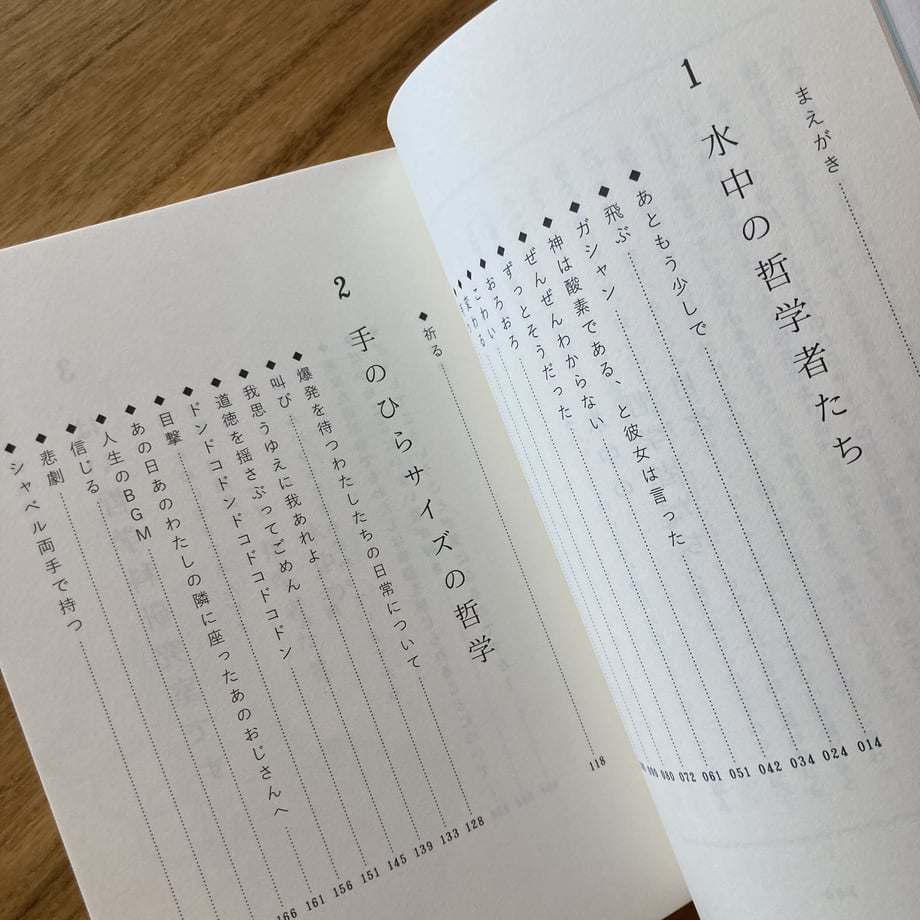 まえがき
1 水中の哲学者たち
◆あともう少しで 014
◆飛ぶ 024
◆ガシャン 034
◆神は酸素である、と彼女は言った 042
◆ぜんぜんわからない 051
◆ずっとそうだった 061
◆おろおろ 072
◆こわい 080
◆祈る 118
2 手のひらサイズの哲学
◆爆発を待つわたしたちの日常について 128
◆叫び 133
◆我思うゆえに我あれよ 139
◆道徳を揺さぶってごめん 145
◆ドンドコドンドコドコドコドン 151
◆目撃 156
◆あの日あのわたしの隣に座ったあのおじさんへ 161
◆人生のBGM 166
◆信じる
◆悲劇
◆シャベル両手で持つ